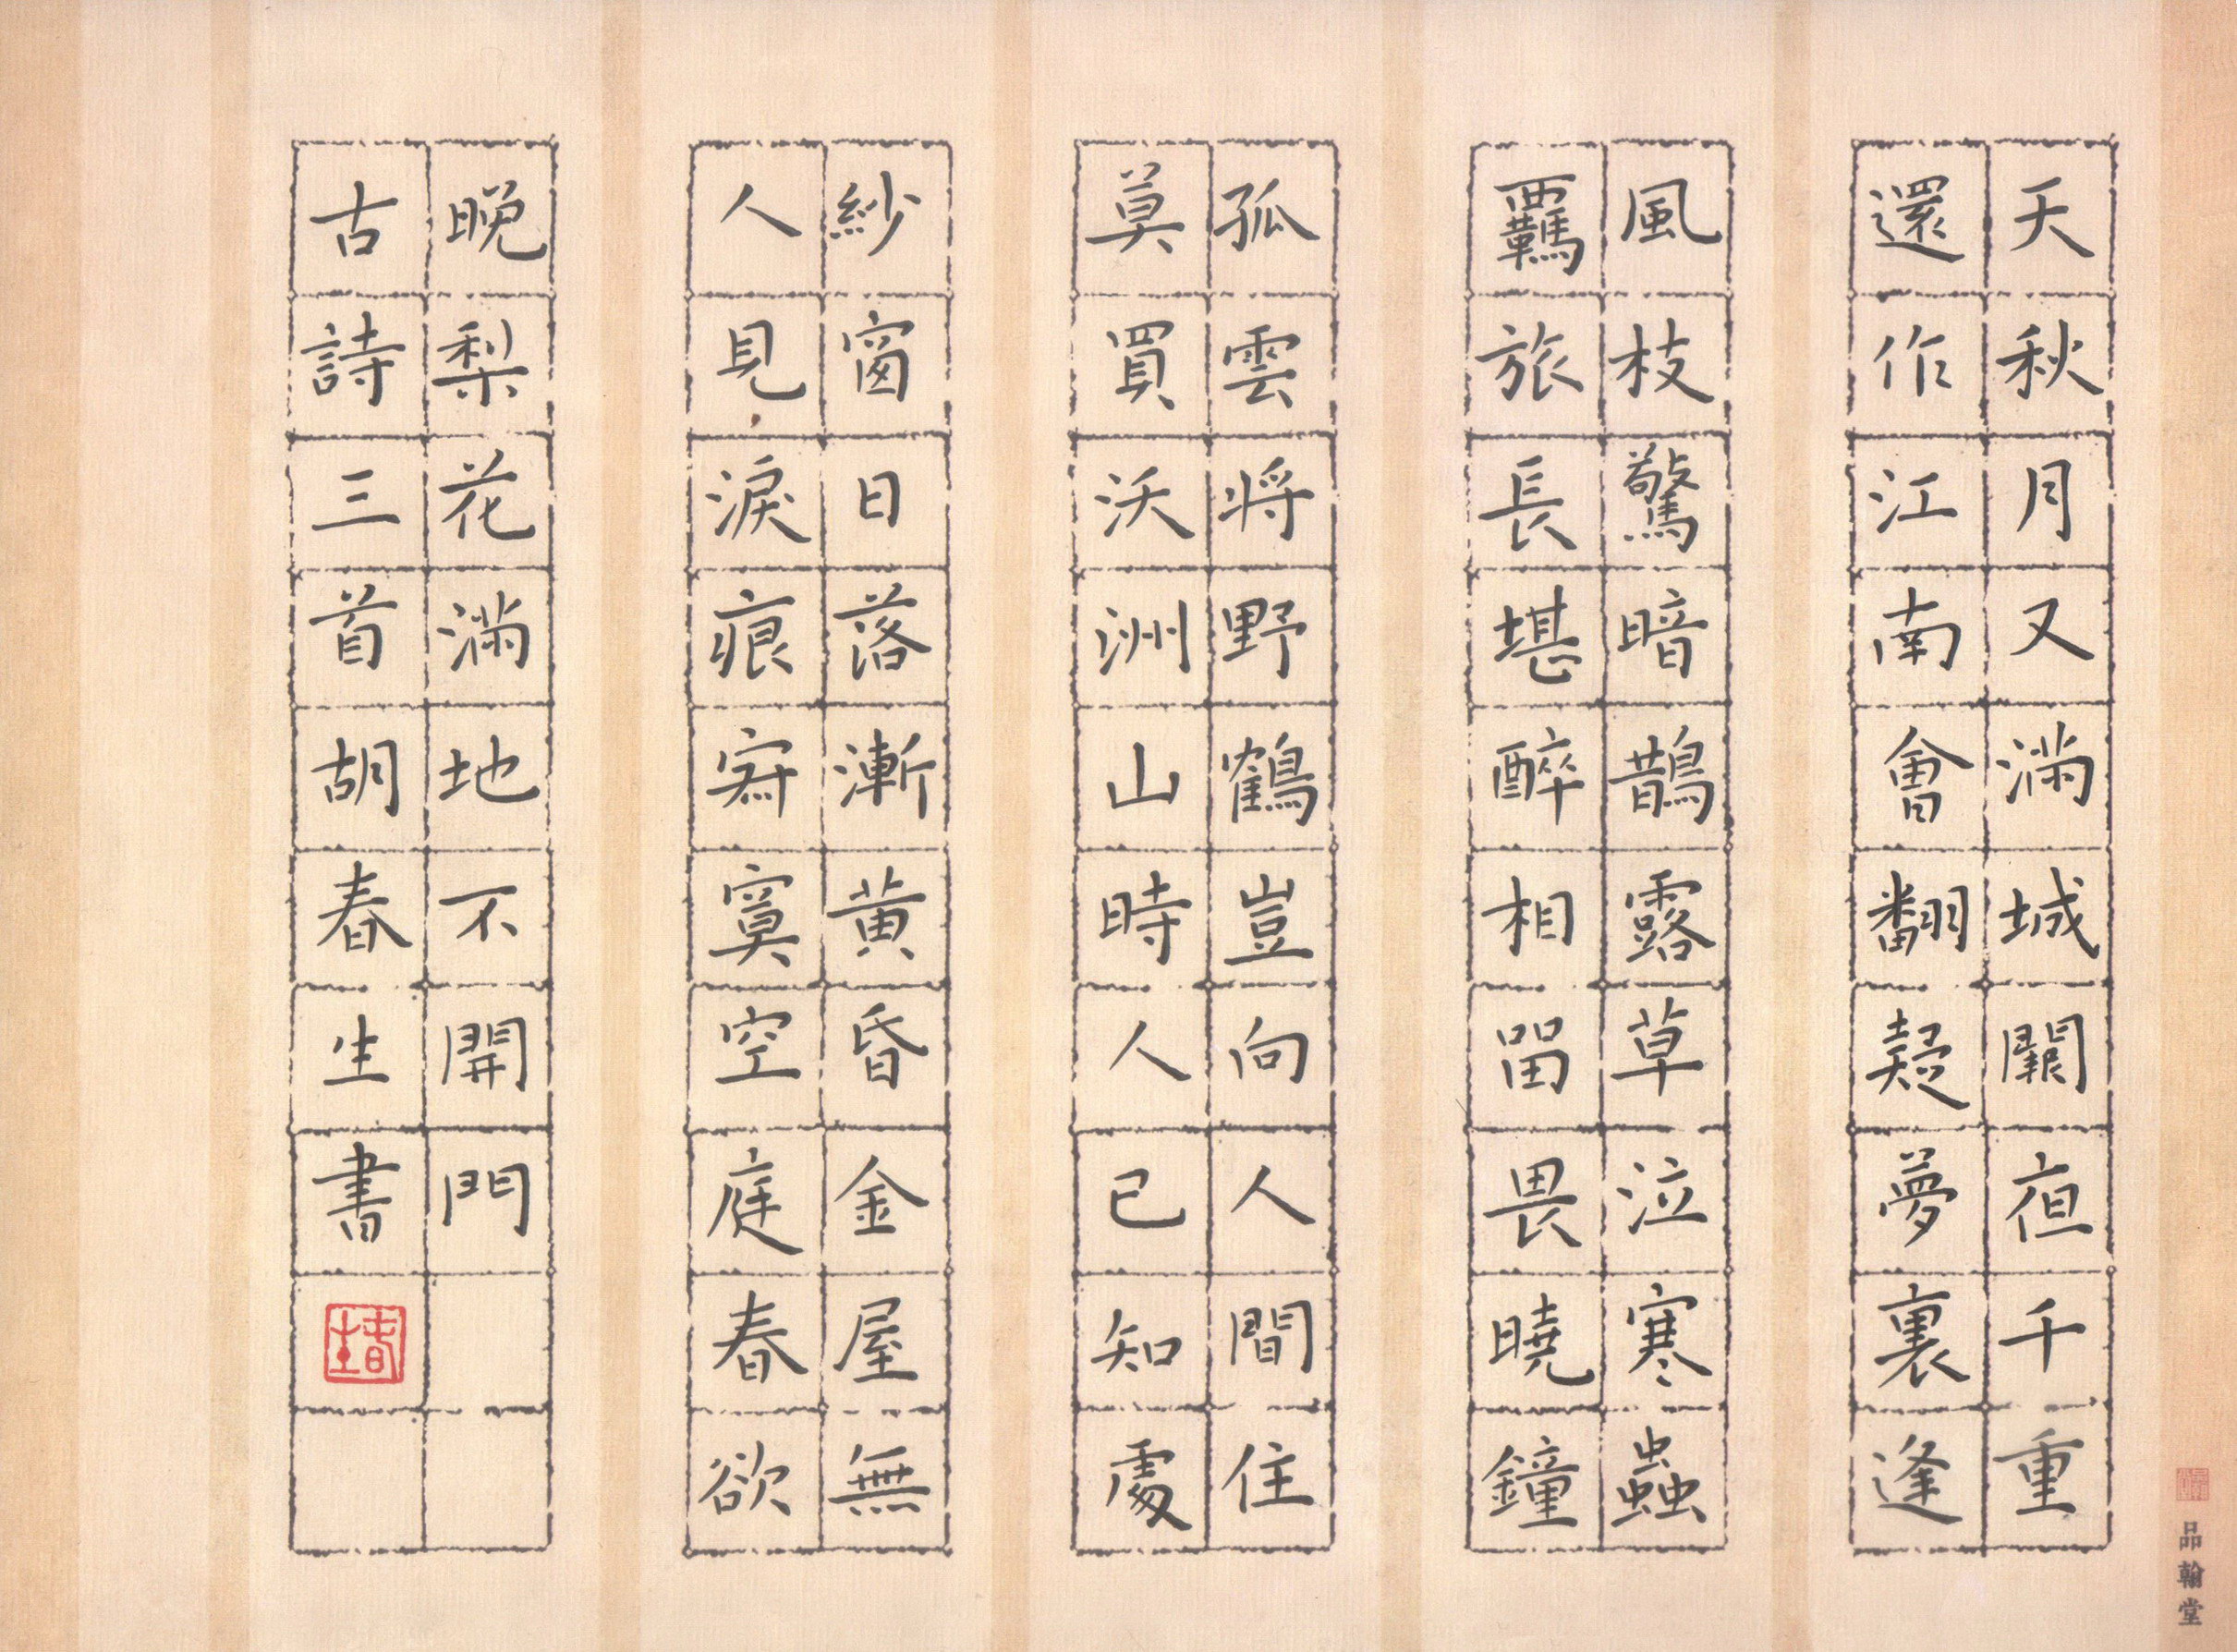 天秋月又滿城闕夜千重
還作江南會翻疑夢裏逢
風枝驚暗鵲露草泣寒蟲
羈旅長堪醉相留畏曉鐘
孤雲將野鶴豈向人間住
莫買沃洲山時人已知處
紗窗日落漸黃昏金屋無
人見淚痕寂寞空庭春欲
晚梨花滿地不開門
古詩三首胡春生書
春生
品翰堂